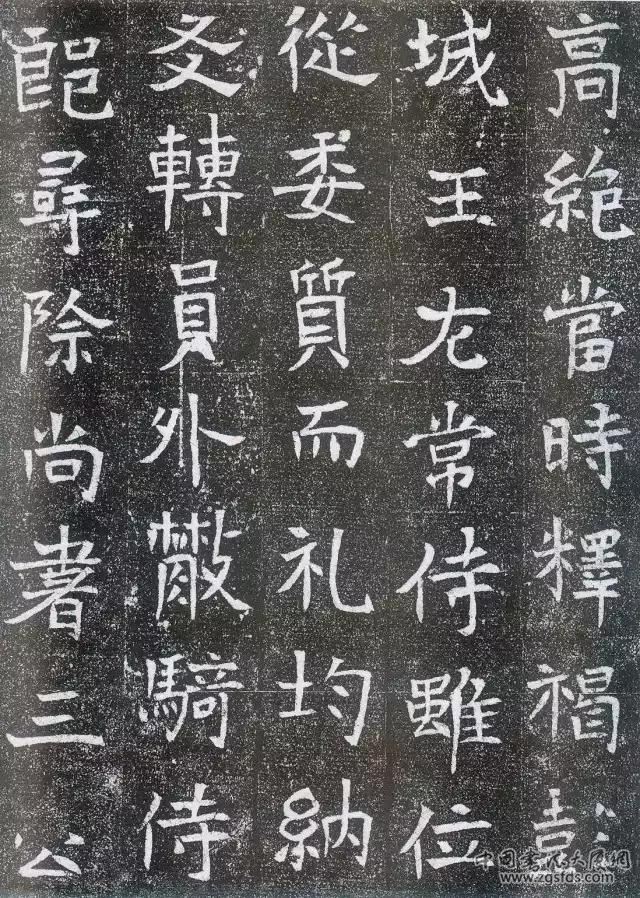 高絶當時釋褐彭
城王尤常侍雖位
從委質而礼均納
爻轉員外散騎侍
郎尋除尚書三公
中国书法大展网
www.zgsfds.com